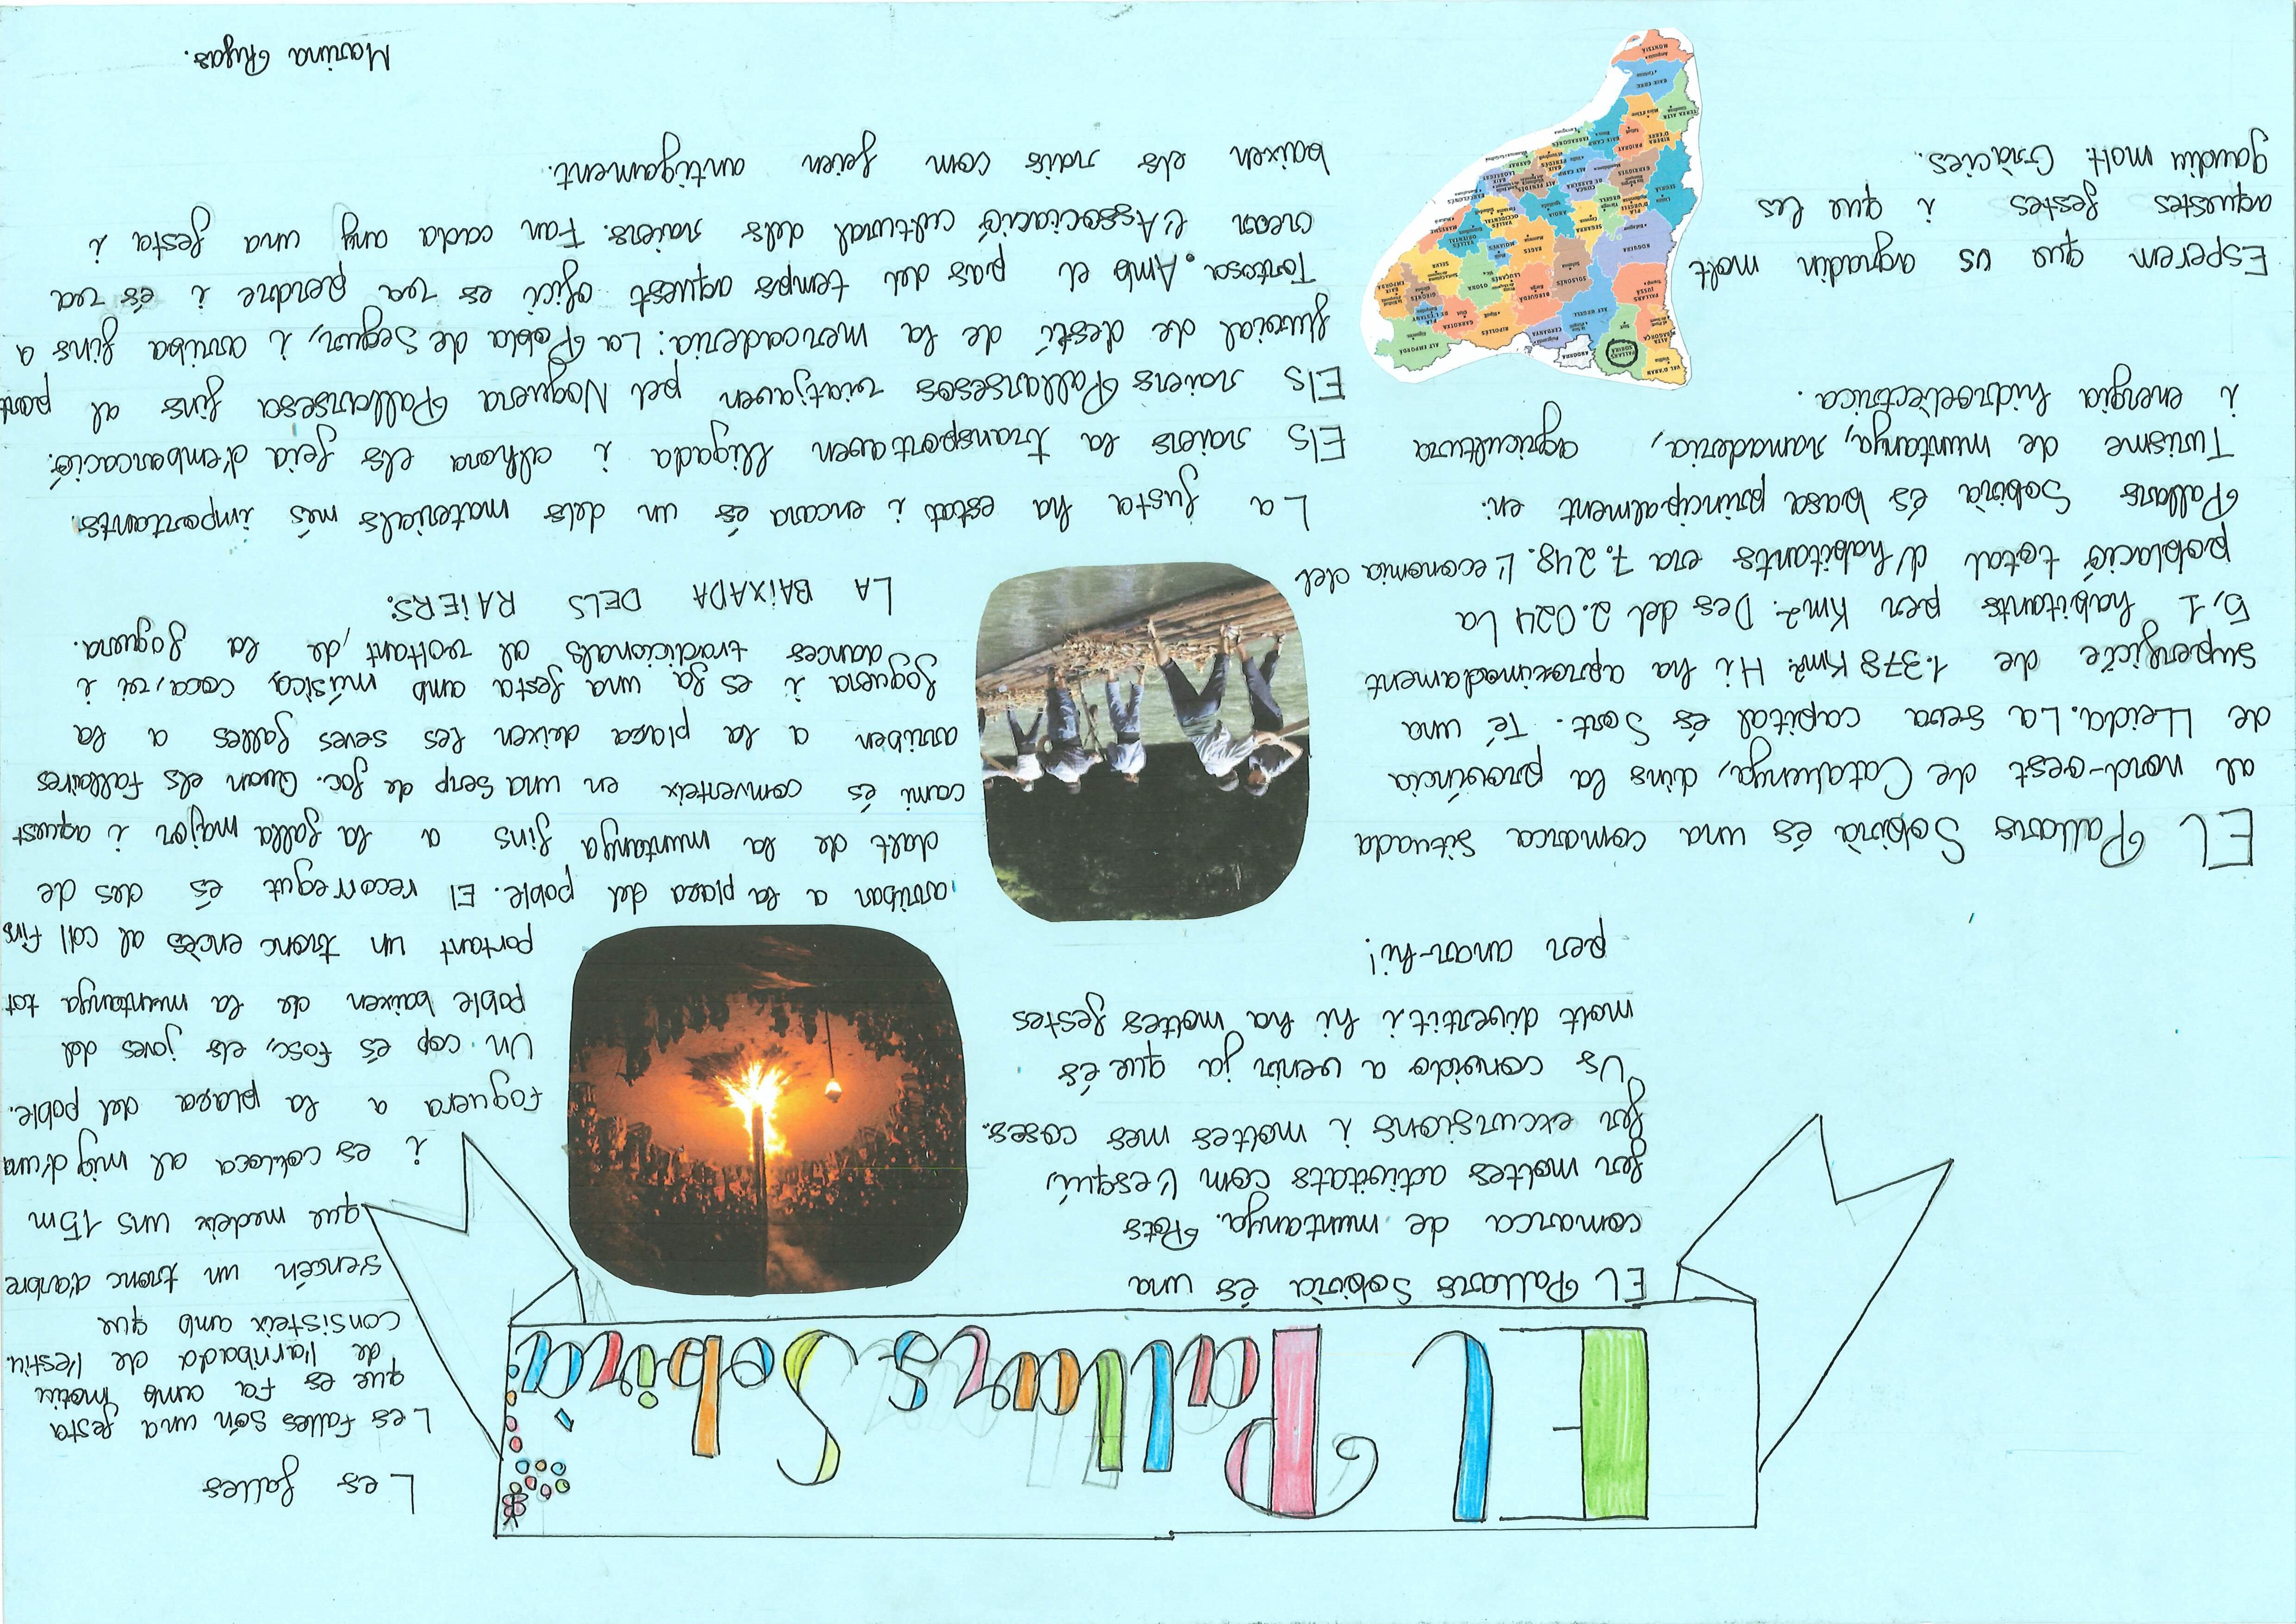 EL Pallars Sobirà
EL Pallars Sobirà és una
comarca de muntanya. Pots
fer moltes activitats com l'esquí,
fer excursions i moltes mes coses.
Us convido a venir ja que és
molt divertit i hi ha moltes festes
per anar-hi!
EL Pallars Sobirà és una comarca situada
al nord-oest de Catalunya, dins la província
de LLeida. La seva capital és Sort. Té una
superfície de 1.378 Km². Hi ha aproximadament
5,1 habitants per Km². Des del 2.024 La
població total d'habitants era 7.248. L'economia del
Pallars Sobirà és basa principalment en:
Turisme de muntanya, ramaderia, agricultura
i energia hidroelèctrica.
Esperem que us agradin molt
aquestes festes i que les
gaudiu molt. Gràcies.
VAL D'ARAN
ALTA RIBAGORÇA
PALLARS SOBIRÀ
PALLARS JUSSÀ
ANDORRA
ALT URGELL
CERDANYA
RIPOLLÈS
GARROTXA
ALT EMPORDÀ
BERGUEDÀ
SOLSONÈS
OSONA
SELVA
NOGUERA
BAGES
SEGARRA
ANOIA
PRIORAT
TERRA ALTA
BAIX EBRE
MONTSIÀ
Les falles
Les falles són una festa
que es fa amb motiu
de l'arribada de l'estiu
consisteix amb que
s'encén un tronc d'arbre
que medeix uns 15m
i es col·loca al mig d'una
foguera a la plaça del poble.
Un cop és fosc, els joves del
poble baixen de la muntanya tot
portant un tronc encès al coll fins
arriban a la plaça del poble. El recorregut és des de
dalt de la muntanya fins a la falla major i aquest
camí és comverteix en una serp de foc. Quan els Fallaires
arriben a la plaça deixen les seves falles a la
foguera i es fa una festa amb música, coca, vi i
dances tradicionals al voltant, de la foguera.
LA BAiXADA DELS RAiERS:
La fusta ha estat i encara és un dels materials més importants.
Els raiers la transportaven lligada i alhora els feia d'embarcació.
Els raiers Pallaresos viatjaven pel Noguera Pallaresa fins al port
fluvial de destí de la mercaderia: La Pobla de Segur, i arriba fins a
Tortosa. Amb el pas del temps aquest ofici es va perdre i és va
crear l'Associació cultural dels raiers. Fan cada any una festa i
baixen els rais com feien antigament.
Martina